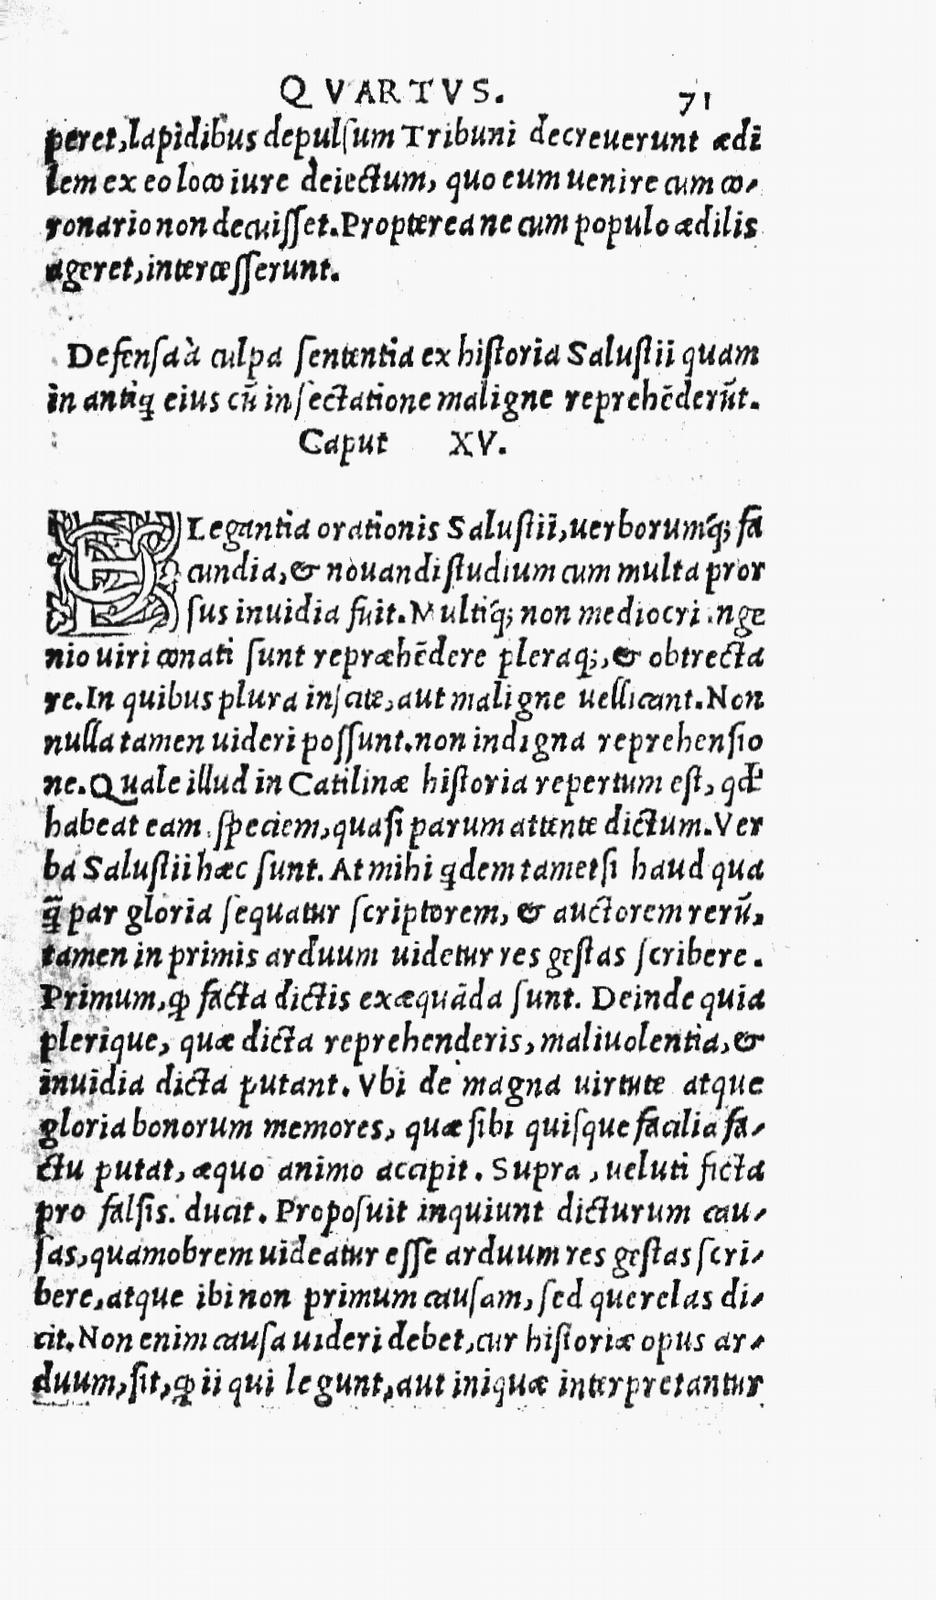 QVARTVS. 71
peret, lapidibus depulsum Tribuni decreuerunt ædi
lem ex eo loco iure deiectum, quo eum uenire cum co-
ronario non decuisset. Propterea ne cum populo ædilis
ageret, intercesserunt.
Defensa à culpa sententia ex historia Salustii quam
in antiq; eius cū insectatione maligne reprehēderūt.
Caput XV.
ELegantia orationis Salustii, uerborumq́; fa
cundia, & nouandi studium cum multa pror
sus inuidia fuit. Multiq́; non mediocri inge
nio uiri conati sunt repræhēdere pleraq;, & obtrecta
re. In quibus plura inscite, aut maligne uellicant. Non
nulla tamen uideri possunt. non indigna reprehensio
ne. Quale illud in Catilinæ historia repertum est, qd̕
habeat eam speciem, quasi parum attente dictum. Ver
ba Salustii hæc sunt. At mihi qdem tametsi haud qua
q̄ par gloria sequatur scriptorem, & auctorem rerū,
tamen in primis arduum uidetur res gestas scribere.
Primum, ꝙ facta dictis exæquāda sunt. Deinde quia
plerique, quæ dicta reprehenderis, maliuolentia, &
inuidia dicta putant. Vbi de magna uirtute atque
gloria bonorum memores, quæ sibi quisque facilia fa-
ctu putat, æquo animo accipit. Supra, ueluti ficta
pro falsis. ducit. Proposuit inquiunt dicturum cau-
sas, quamobrem uideatur esse arduum res gestas scri-
bere, atque ibi non primum causam, sed querelas di-
cit. Non enim causa uideri debet, cur historiæ opus ar-
duum, sit, ꝙ ii qui legunt, aut iniquæ interpretantur